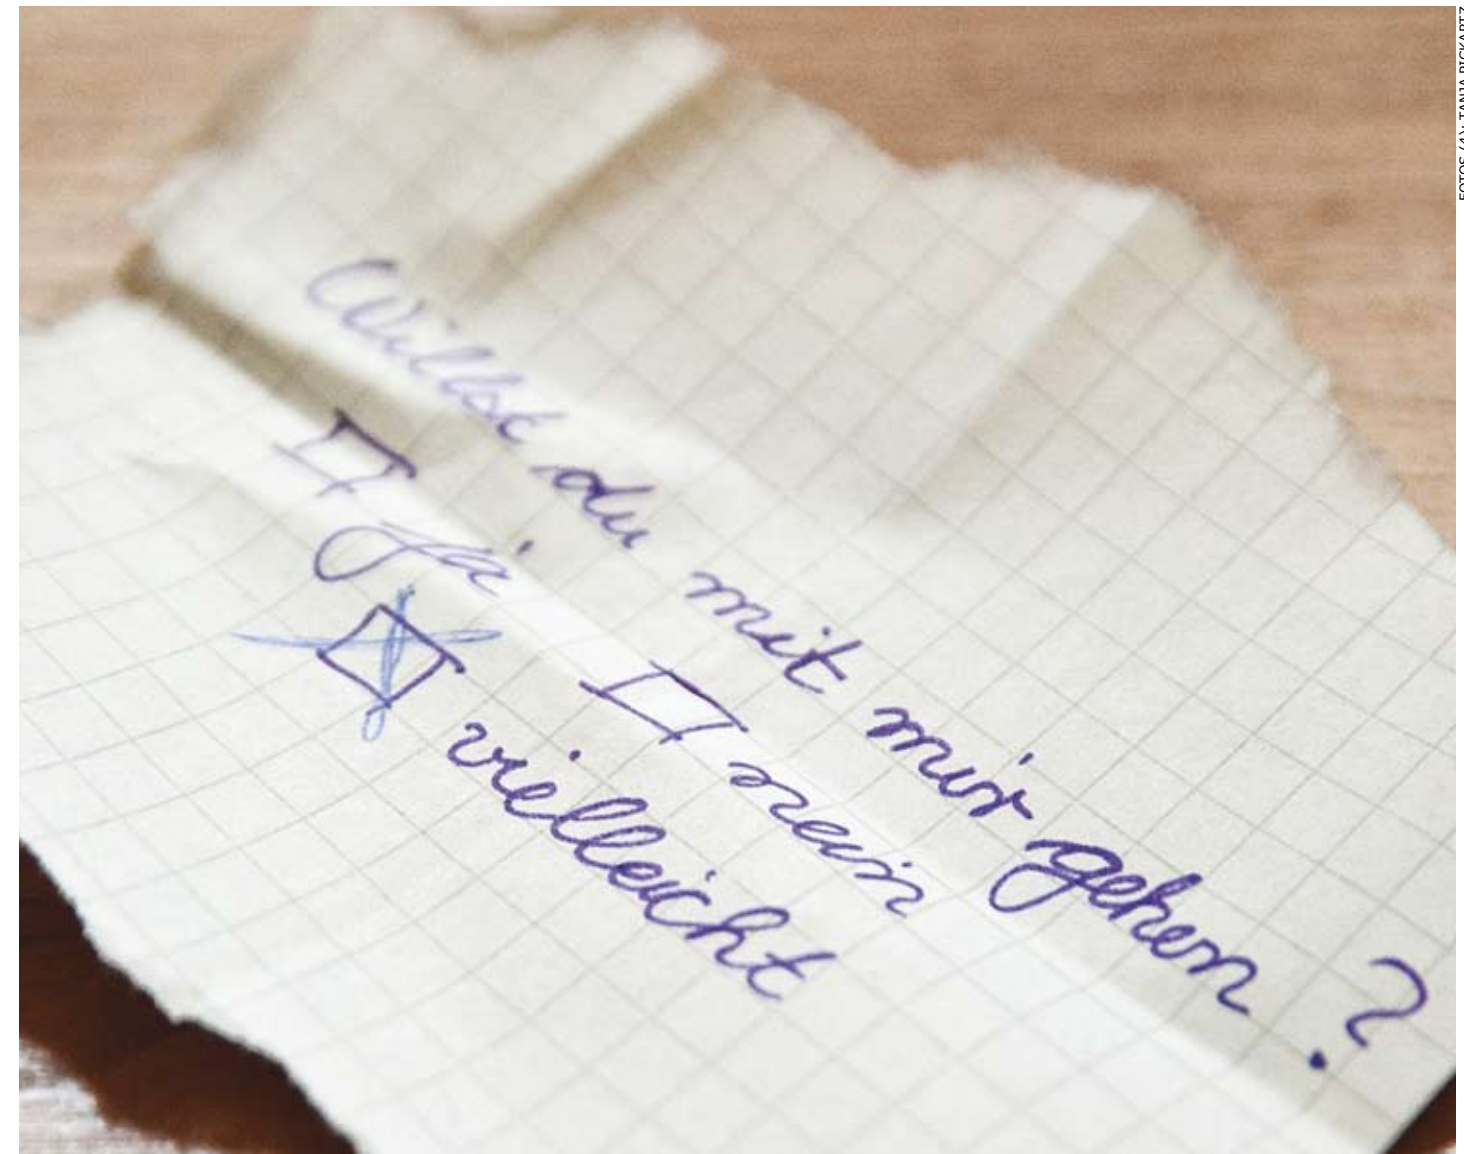 Willst du mit mir gehen?
ja nein
vielleicht
FOTOS (4): TANJA PICKARTZ